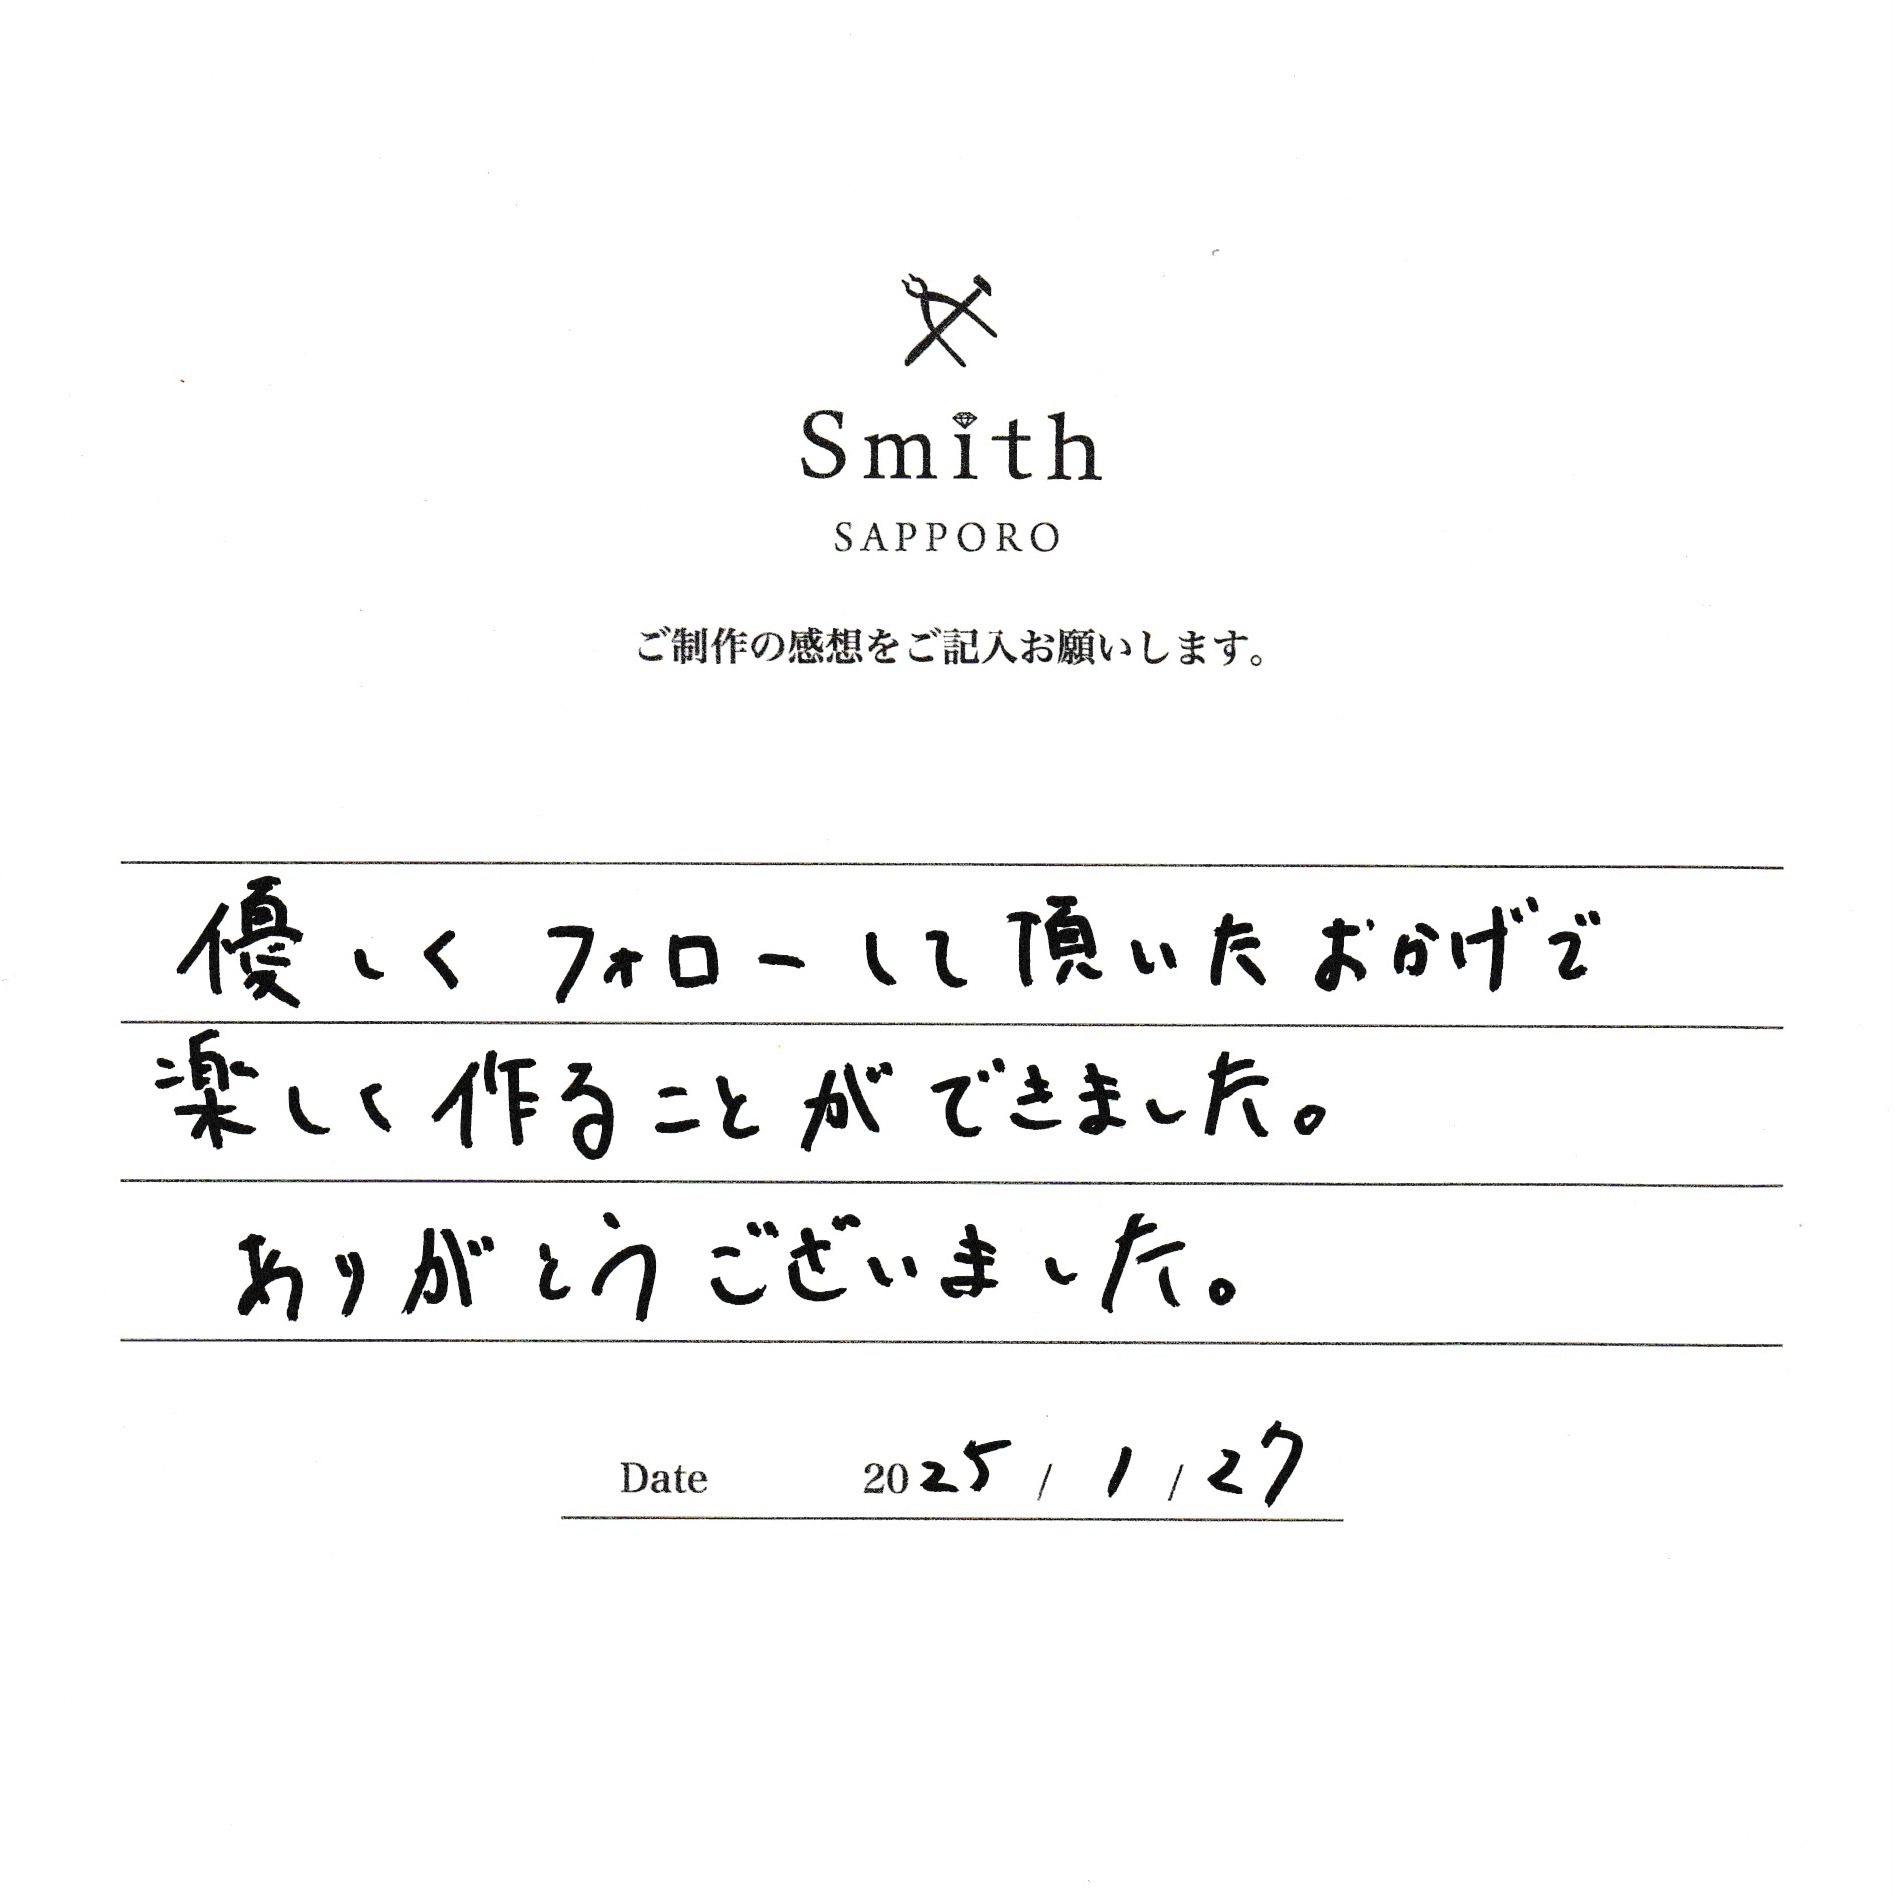 Smith
SAPPORO
ご制作の感想をご記入お願いします。
優しくフォローして頂いたおかげで
楽しく作ることができました。
ありがとうございました。
Date 2025 / 1 / 27